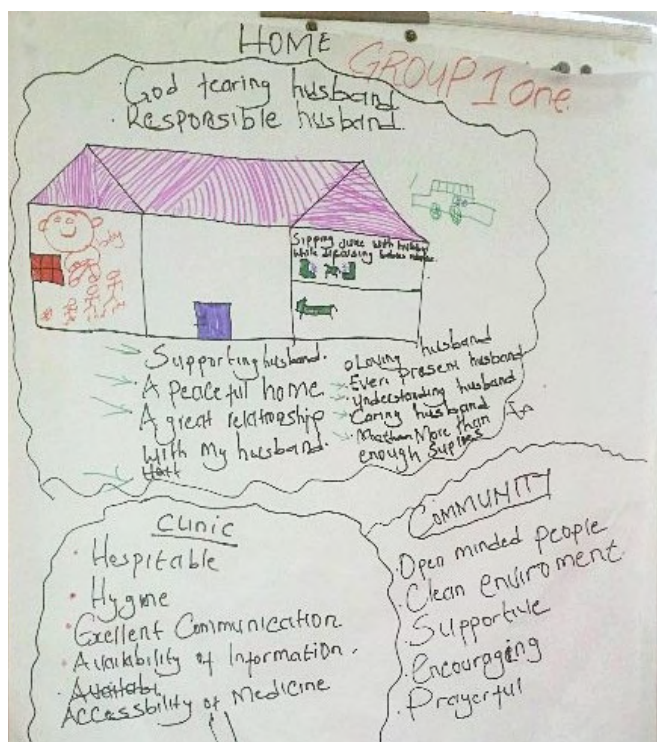 HOME
GROUP 1 One
God fearing husband
Responsible husband
Sipping juice with hubby
while discussing babies
Supporting husband.
A peaceful home
A great relationship
With My husband.
Loving husband
Ever Present husband
Understanding husband
Caring husband
More than
enough Suplies
Clinic
Hospitable
Hygine
Exellent Communication
Availability of Information.
Availabi
Accessbility of Medicine
COMMUNITY
Open minded people
Clean enviroment
Supportive
encouraging
Prayerful